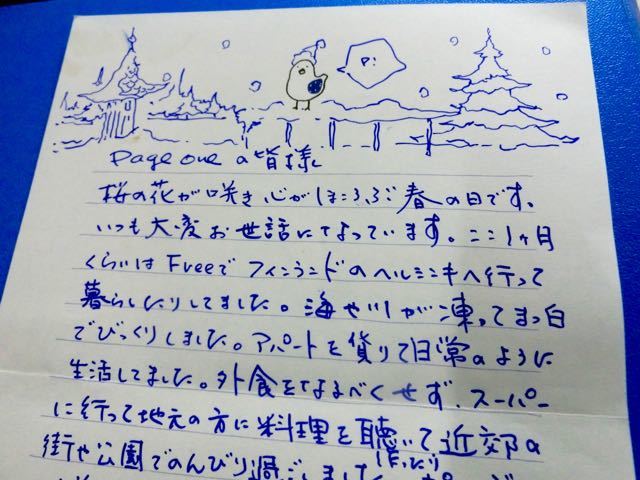 P!
Page one の皆様
桜の花が咲き心がほころぶ春の日です。
いつも大変お世話になっています。ここ1ヶ月
くらいは Freeで フィンランドのヘルシンキへ行って
暮らしたりしてました。海や川が凍ってまっ白
でびっくりしました。アパートを貸りて日常のように
生活してました。外食をなるべくせず、スーパー
に行って地元の方に料理を聴いて近郊の
街や公園でのんびり過ごしました
作ったり